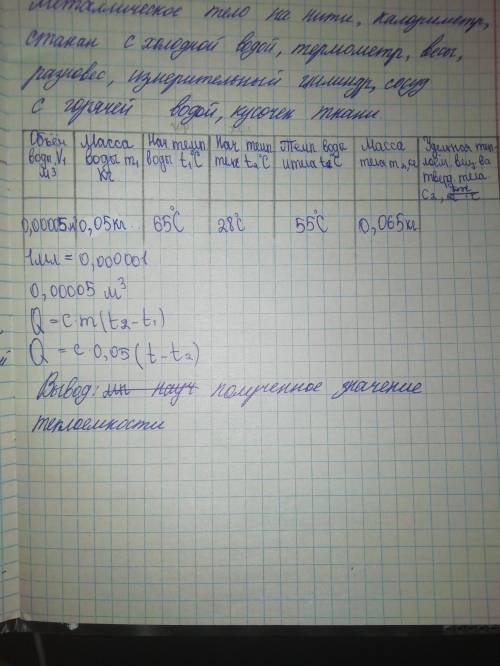 Металлическое тело на нити, калориметр,
стакан с холодной водой, термометр, весы,
разновес, измерительный цилиндр, сосуд
с горячей водой, кусочек ткани
Объём воды, V₁ м3
Масса воды m₁ кг
Нач темп воды t₁°C
Нач темп тела t₂°C
Темп воды и тела t°C
Масса тела m₂, кг
Удельная теплоём. вещ, ва тверд. тела C₂,
0,00005м³ 0,05кг 65°C 28°C 55°C 0,065кг
1мл = 0,000001
0,00005 м³
Q = c m (t₂ - t₁)
Q = c 0,05 (t - t₂)
Вывод: полученное значение
теплоемкости